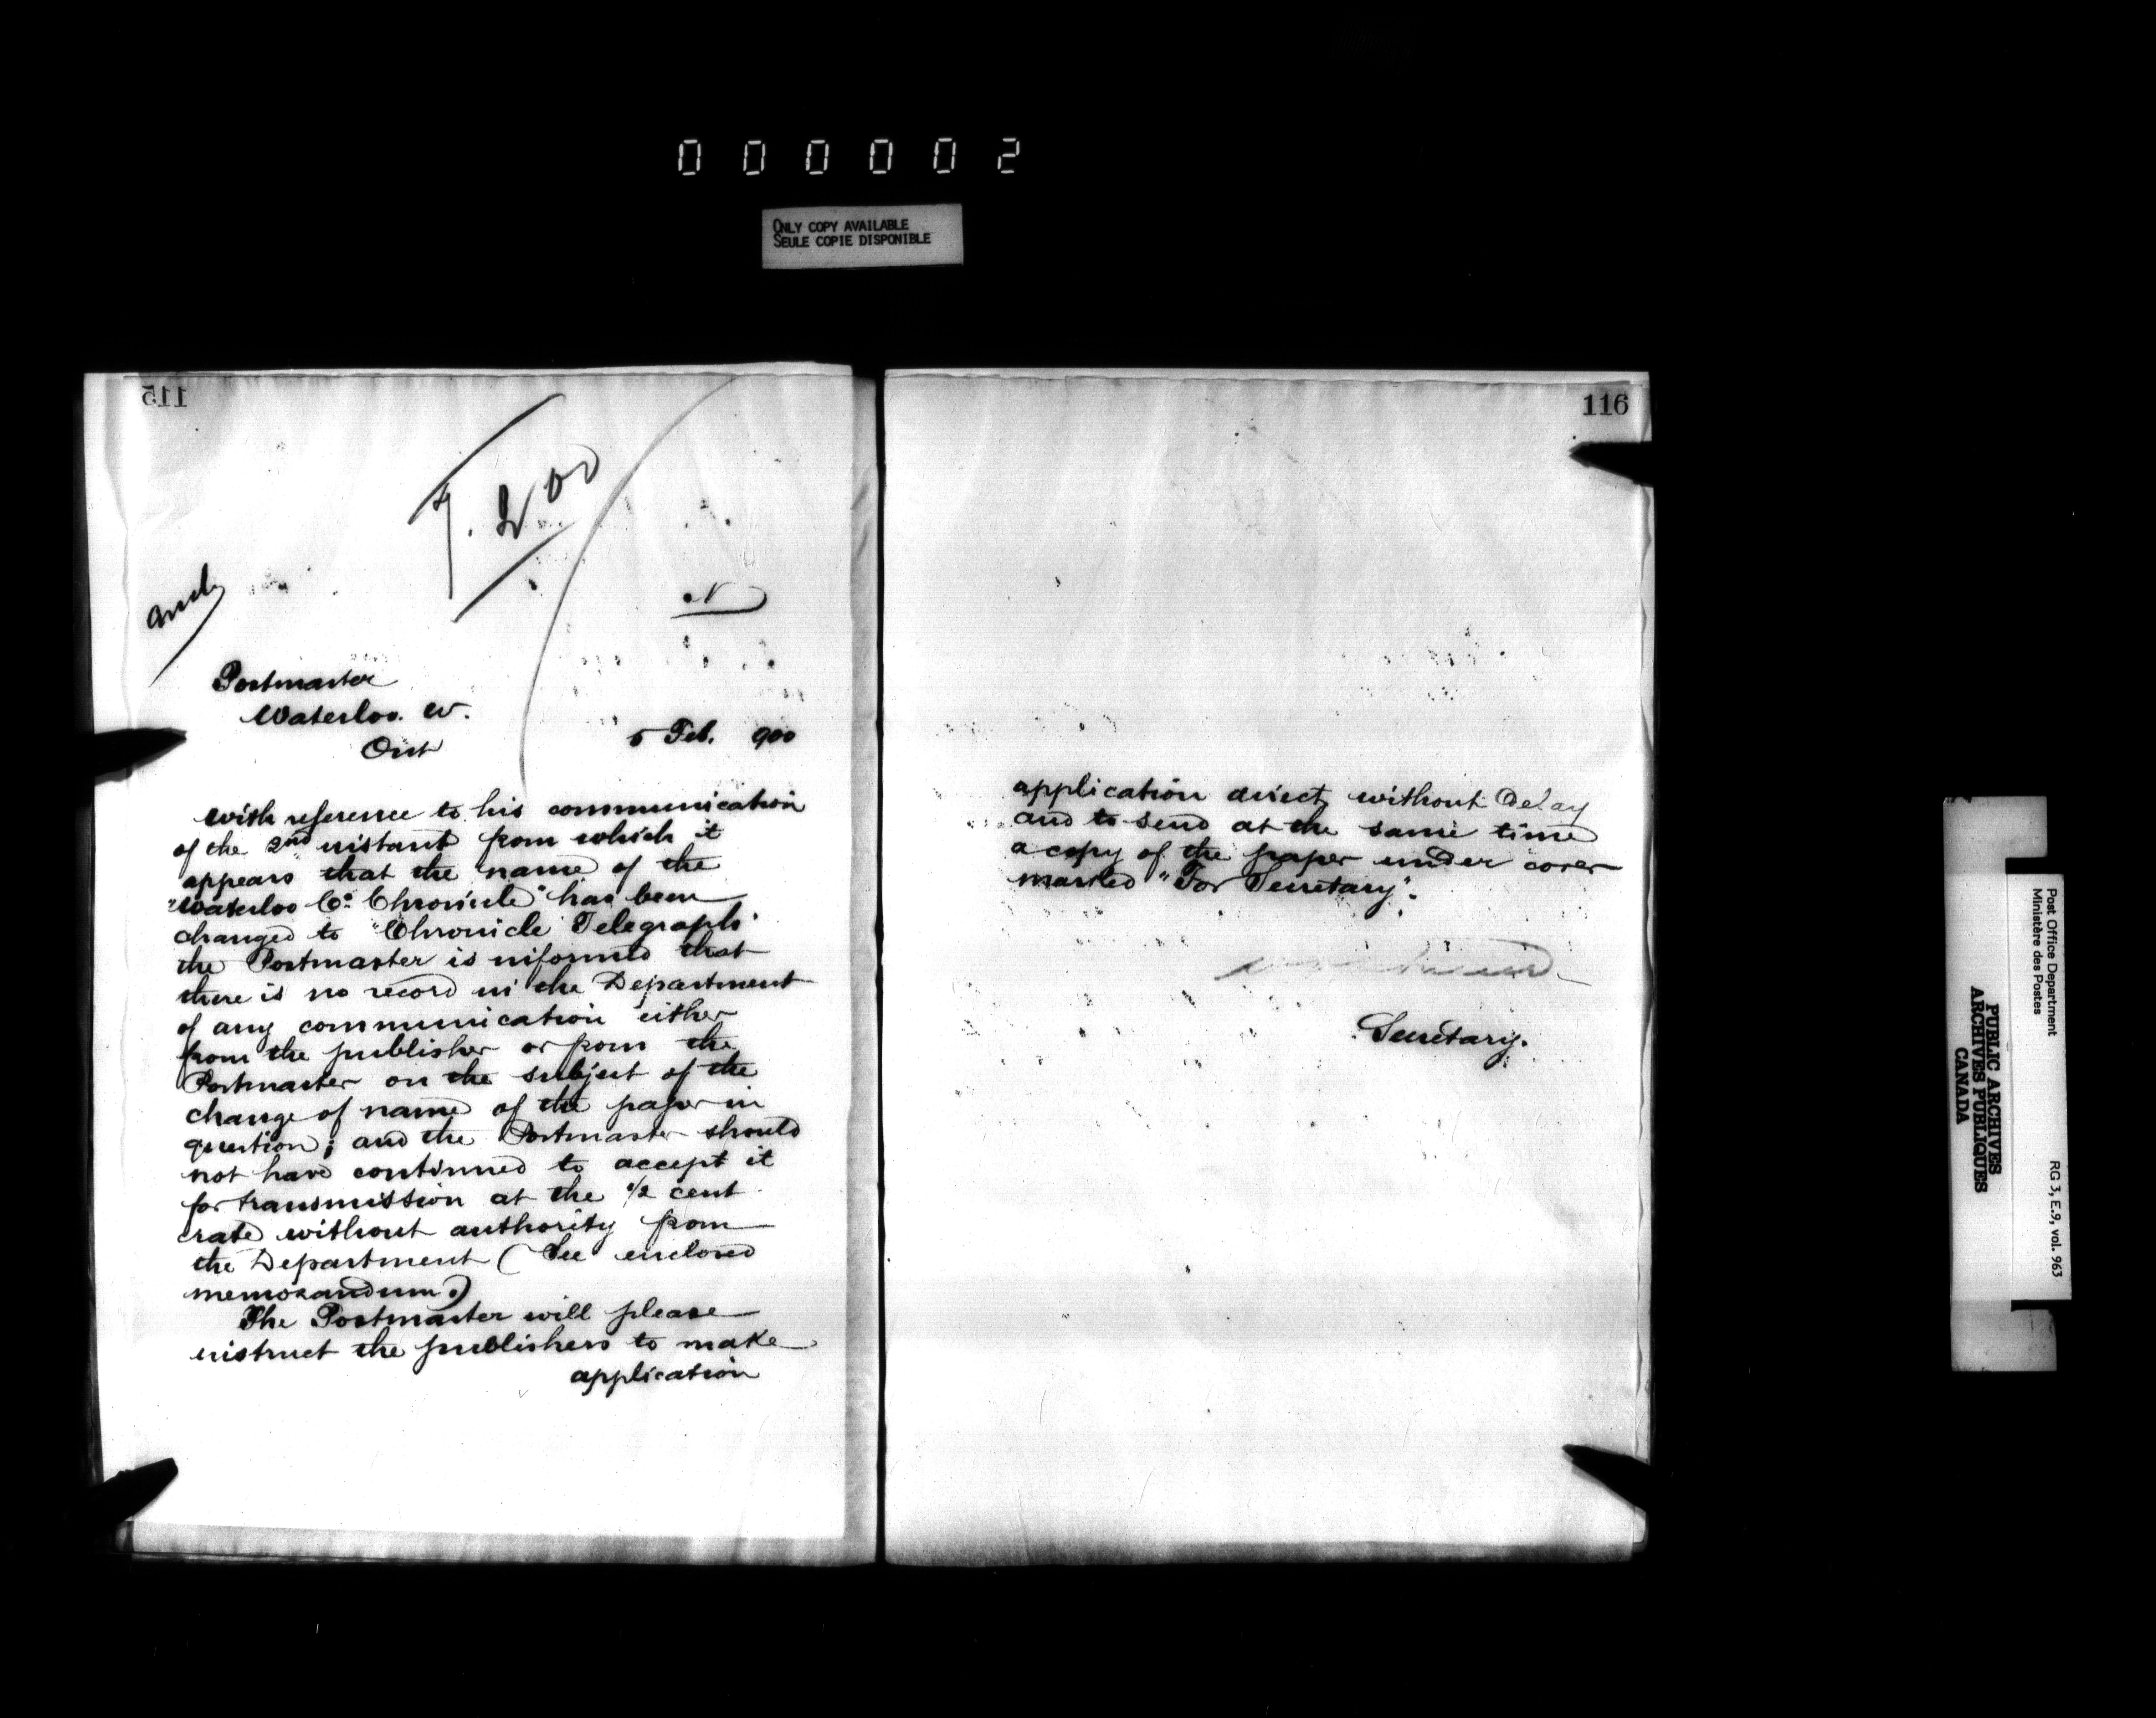 000002
ONLY COPY AVAILABLE
SEULE COPIE DISPONIBLE
115
T. 200
N
Postmaster
Waterloo. W.
Ont
5 Feb. 900
with reference to his communication
of the 2nd instant from which it
appears that the name of the
"Waterloo Co. Chronicle" has been
changed to "Chronicle Telegraph"
the Postmaster is informed that
there is no record in the Department
of any communication either
from the publisher or from the
Postmaster on the subject of the
change of name of the paper in
question; and the Postmaster should
not have continued to accept it
for transmission at the 1/2 cent
rate without authority from
the Department (See enclosed
memorandum.)
The Postmaster will please
instruct the publishers to make
application
116
application direct, without delay
and to send at the same time
a copy of the paper under cover
marked "For Secretary".
Secretary.
Post Office Department
Ministère des Postes
RG 3, E.9, vol. 963
PUBLIC ARCHIVES
ARCHIVES PUBLIQUES
CANADA